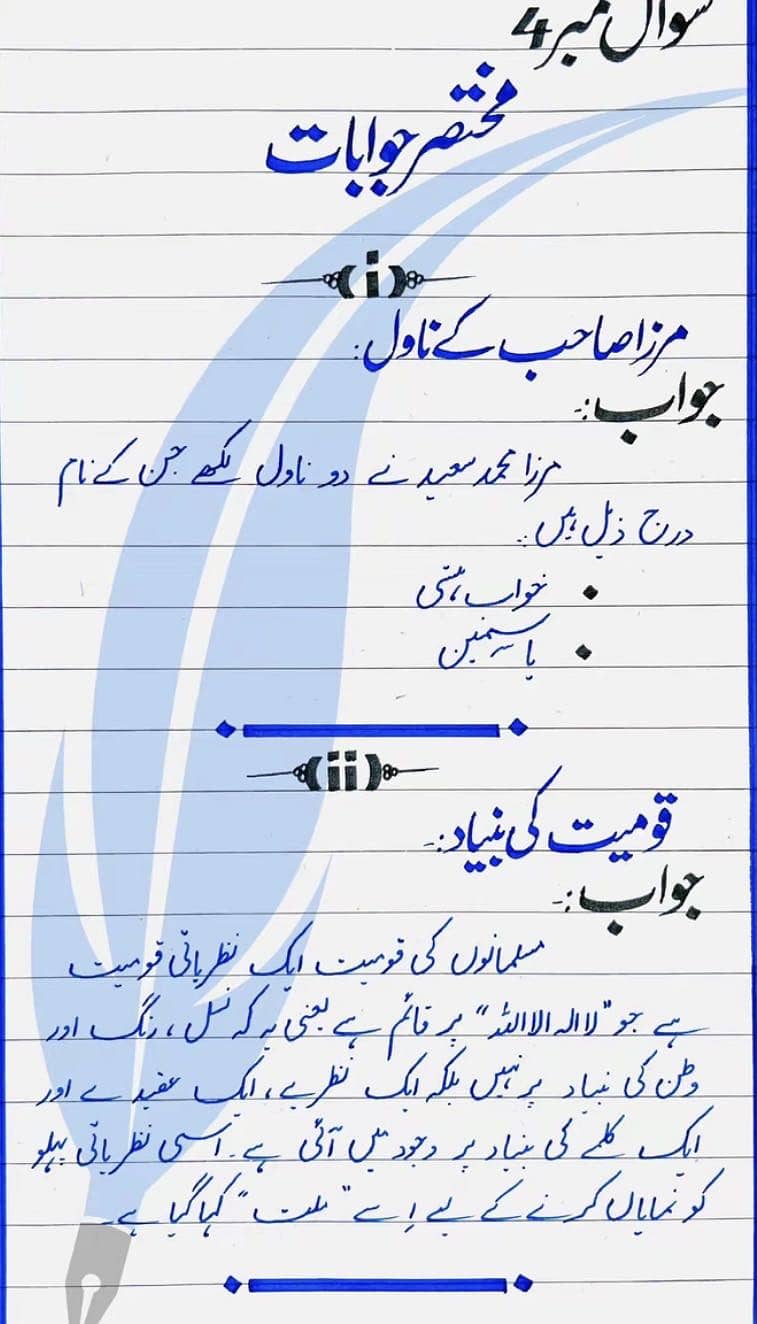 سوال نمبر 4
مختصر جوابات
(i)
مرزا صاحب کے ناول:
جواب:-
مرزا محمد سعید نے دو ناول لکھے جن کے نام
درج ذیل ہیں:
• خواب ہستی
• یاسمین
(ii)
قومیت کی بنیاد:-
جواب:-
مسلمانوں کی قومیت ایک نظریاتی قومیت
ہے جو "لا الہ الا اللہ" پر قائم ہے یعنی یہ کہ نسل، رنگ اور
وطن کی بنیاد پر نہیں بلکہ ایک نظریے، ایک عقیدے اور
ایک کلمے کی بنیاد پر وجود میں آئی ہے۔ اسی نظریاتی پہلو
کو نمایاں کرنے کے لیے اِسے "ملت" کہا گیا ہے۔